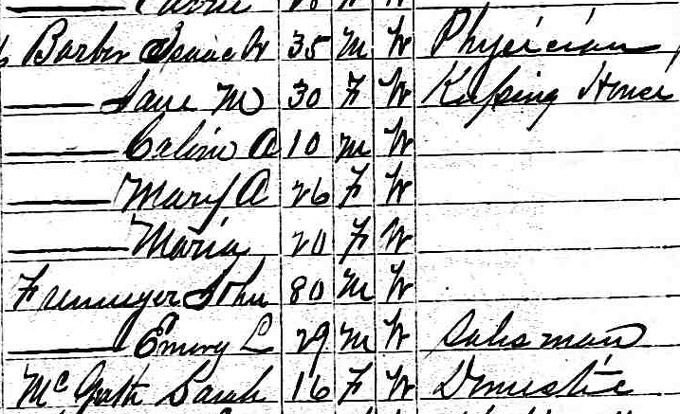 Barber Isaac W 35 M W Physician
—— Jane M 30 F W Keeping House
—— Calvin A 10 M W
—— Mary A 26 F W
—— Maria 20 F W
Fremuyer John 80 M W
—— Emery L 29 M W Salesman
McGath Sarah 16 F W Domestic